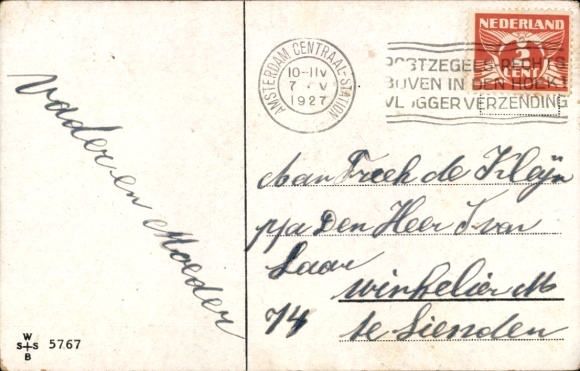 Vader en Moeder
W
S S
B
5767
AMSTERDAM CENTRAAL-STATION
10-11V
7 V
1927
POSTZEGELS RECHTS
BOVEN IN DEN HOEK
VLUGGER VERZENDING
NEDERLAND
3
CENT
Aan Freek de Kleijn
p/a Den Heer J van
Laar
winkelier
74 te Lienden